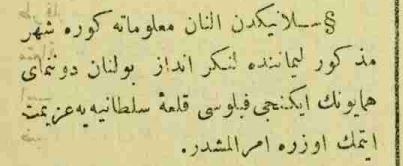 § ســلانیكدن النان معلوماته كوره شهر
مذكور لیماننده لنكر انداز بولنان دوننمای
همایونك ایكنجی فیلوسی قلعهٔ سلطانیه یه عزیمت
ایتمك اوزره امر المشدر.